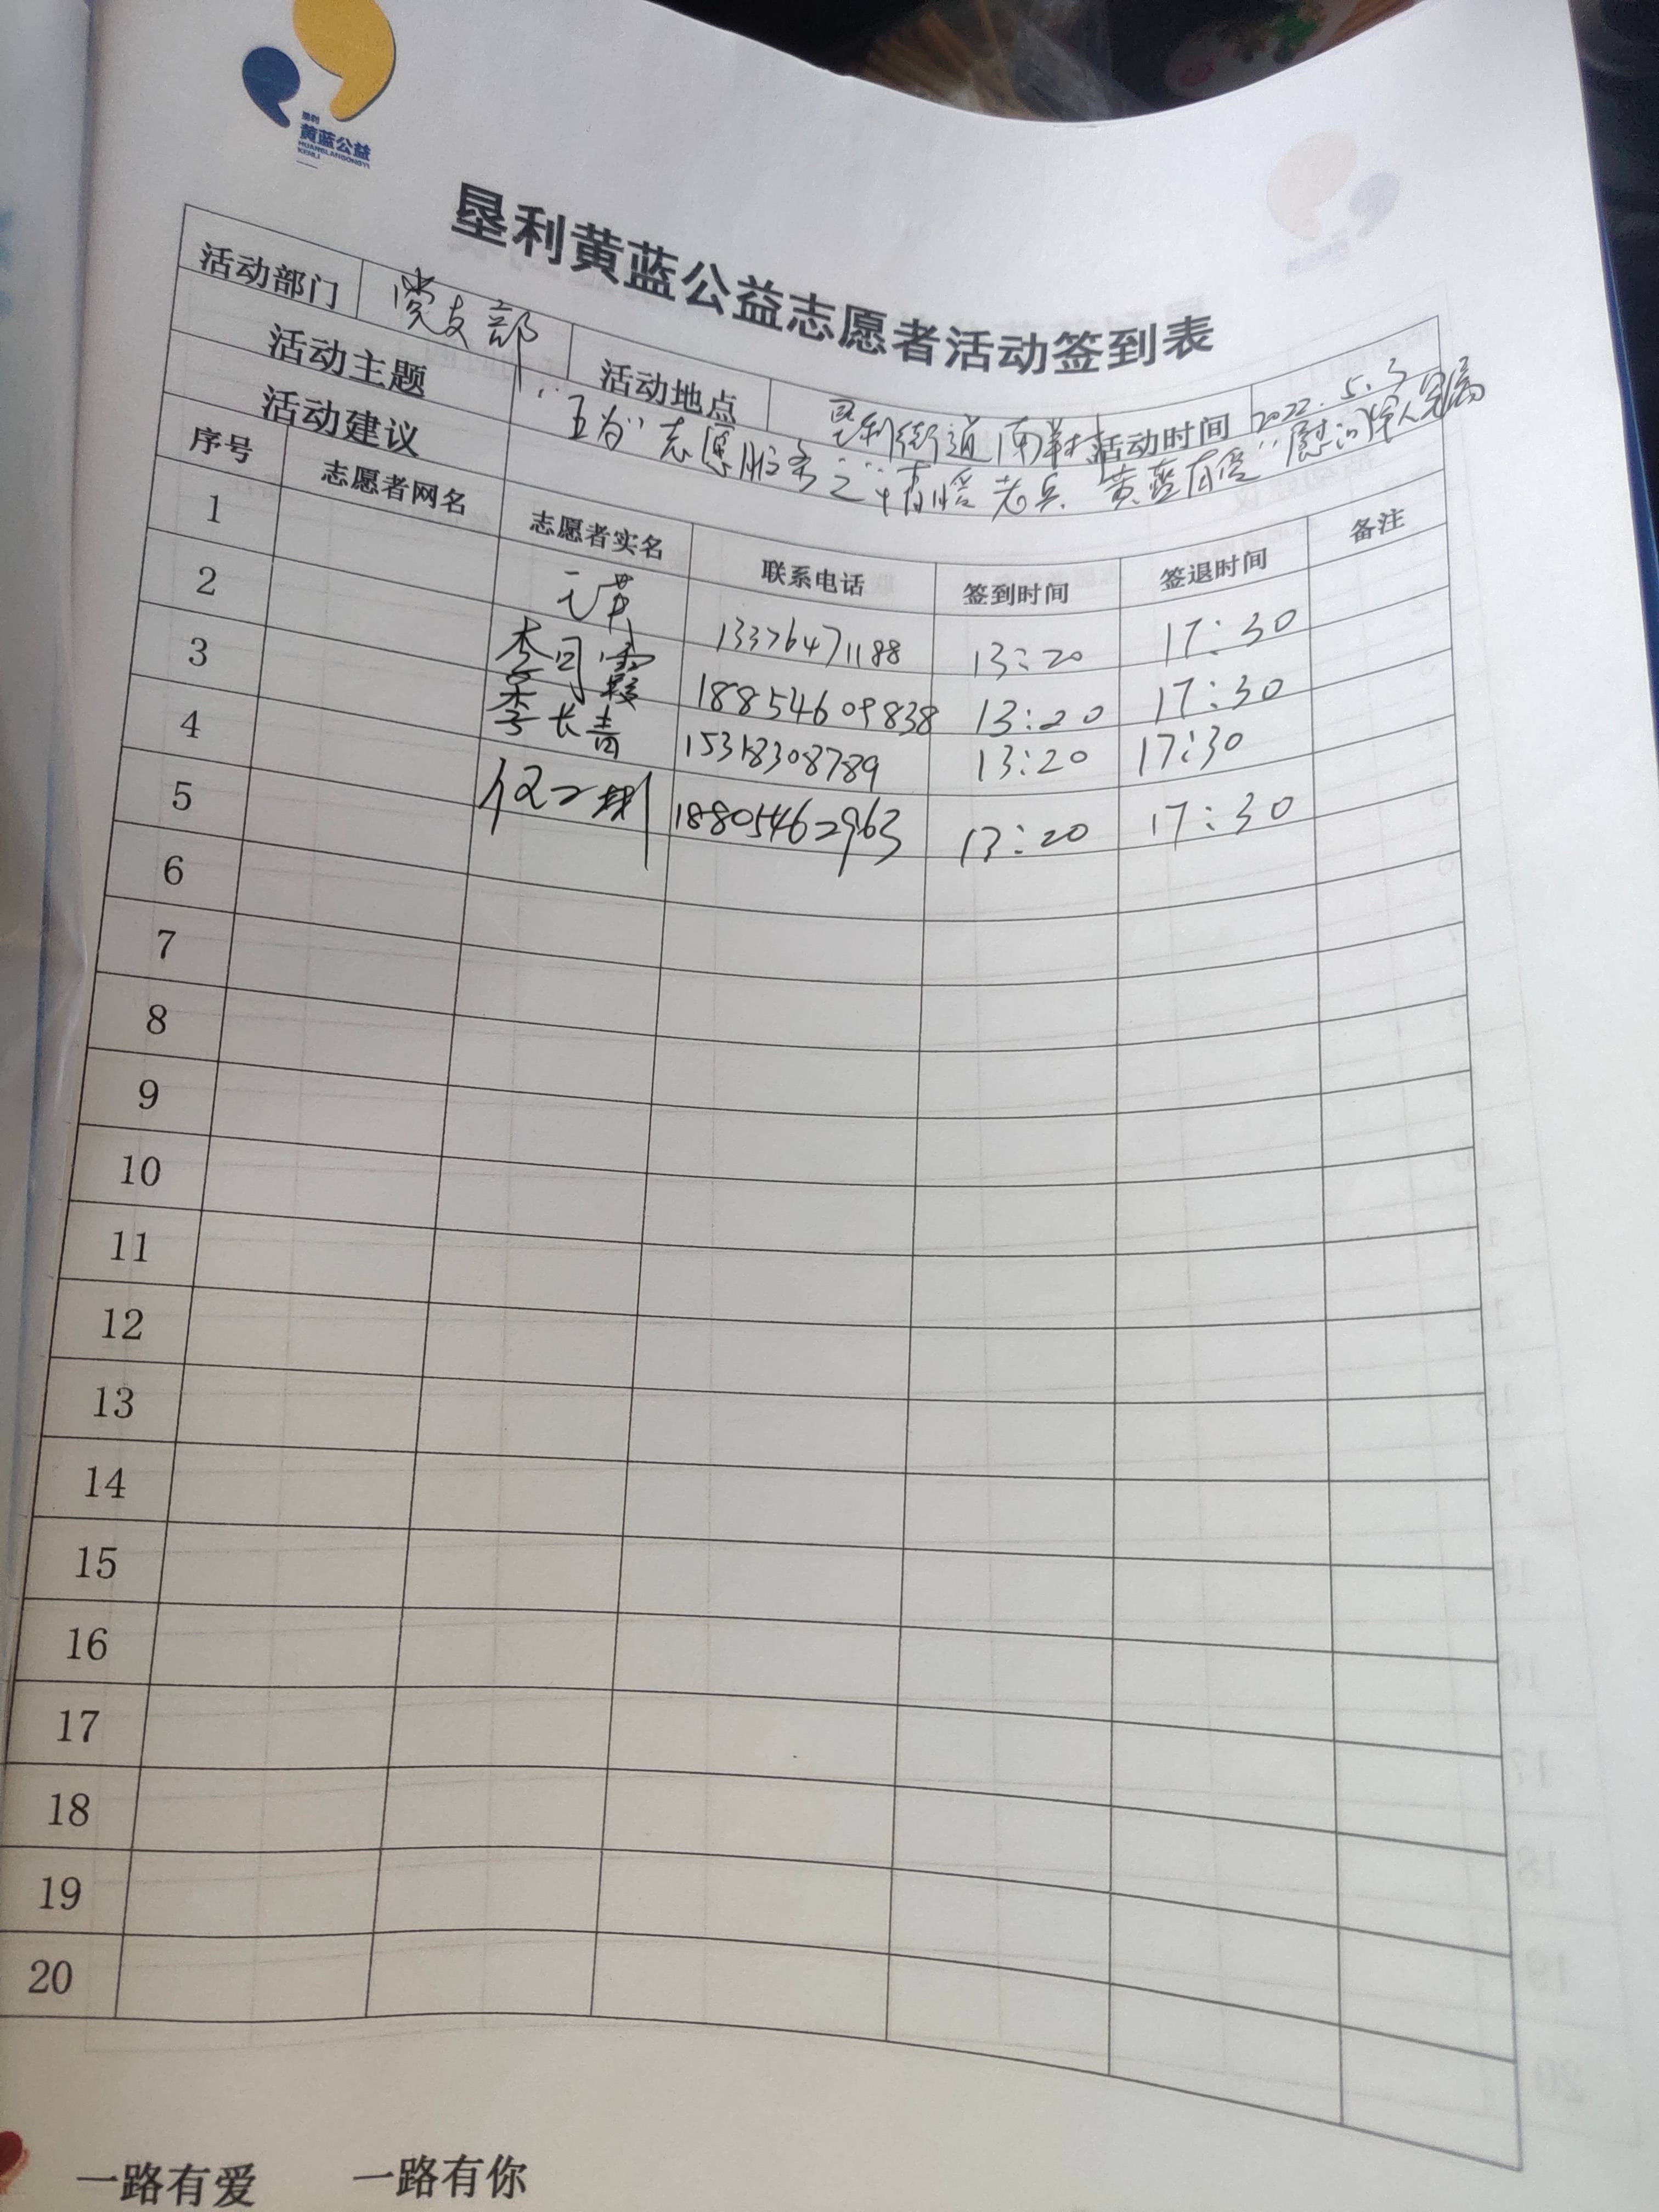 垦利
黄蓝公益
HUANGLANGONGYI
KENLI
垦利黄蓝公益志愿者活动签到表
活动部门 党支部 活动地点 垦利街道南 活动时间 2022.5.3
活动主题 "五为"志愿服务之"情暖老兵 黄蓝有爱"慰问军人家属
活动建议
序号 志愿者网名 志愿者实名 联系电话 签到时间 签退时间 备注
1 13376471188 13:20 17:30
2 李司霞 18854609838 13:20 17:30
3 李长青 15318308789 13:20 17:30
4 18805462963 13:20 17:30
5
6
7
8
9
10
11
12
13
14
15
16
17
18
19
20
一路有爱 一路有你